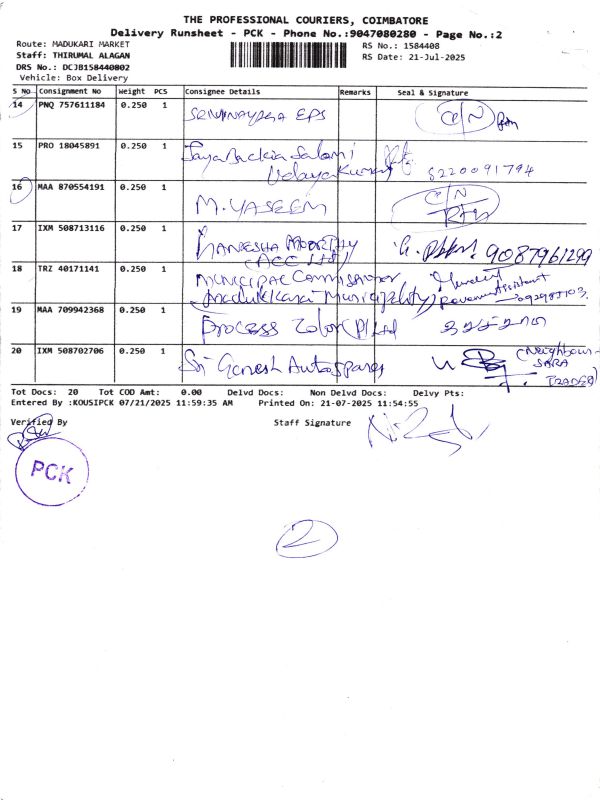 THE PROFESSIONAL COURIERS, COIMBATORE
Delivery Runsheet - PCK - Phone No.:9047080280 - Page No.:2
Route: MADUKARI MARKET
Staff: THIRUMAL ALAGAN
DRS No.: DCJB158440802
Vehicle: Box Delivery
RS No.: 1584408
RS Date: 21-Jul-2025
S No Consignment No Weight PCS Consignee Details Remarks Seal & Signature
14 PNQ 757611184 0.250 1 EPS C/N
15 PRO 18045891 0.250 1 Jaya Backia Salomi
Udaya Kumar 8220091794
16 MAA 870554191 0.250 1 M. YASEEM C/N
17 IXM 508713116 0.250 1 MOORTHY 9087961299
(ACC Ltd)
18 TRZ 40171141 0.250 1 MUNICIPAL Commissioner
(Madukkarai Municipality) Assistant
19 MAA 709942368 0.250 1 Process Color (P) Ltd
20 IXM 508702706 0.250 1 Sri Ganesh Auto Spares (Neighbour-
SARA
TRADER)
Tot Docs: 20 Tot COD Amt: 0.00 Delvd Docs: Non Delvd Docs: Delvy Pts:
Entered By :KOUSIPCK 07/21/2025 11:59:35 AM Printed On: 21-07-2025 11:54:55
Verified By Staff Signature
PCK
2